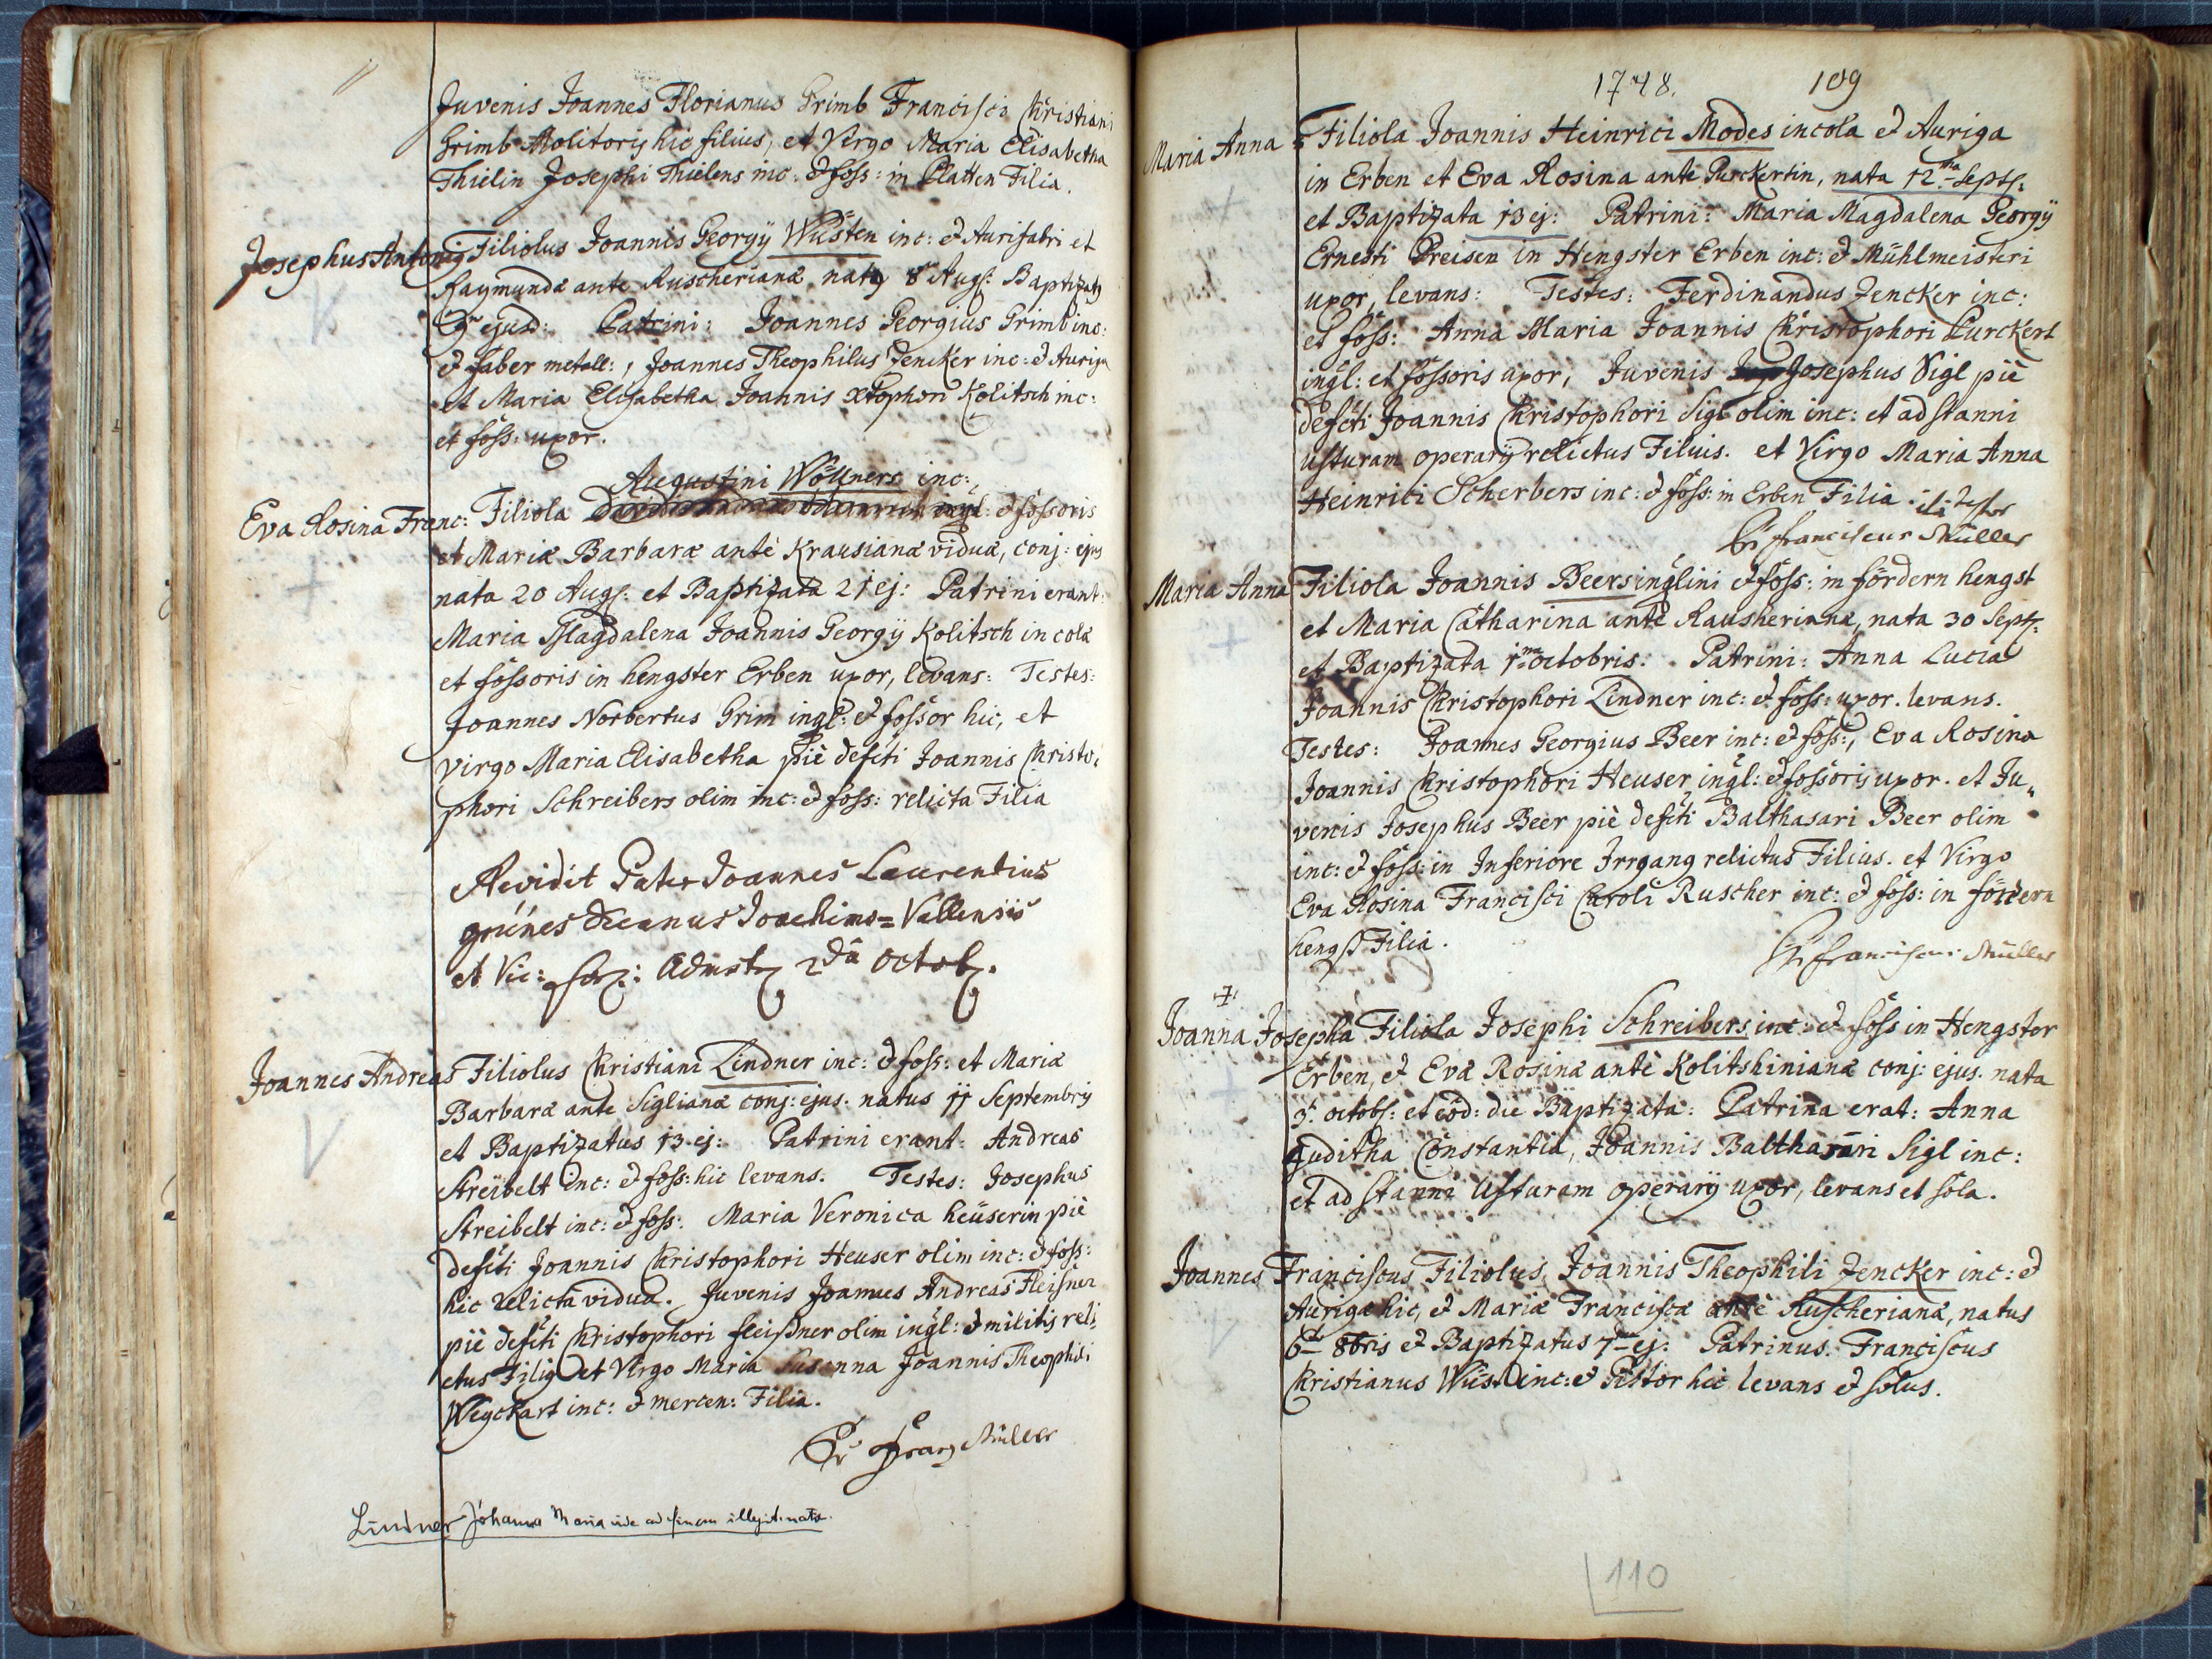 Juvenis Joannes Florianus Grimb Francisci Christiani
Grimb Molitoris hic filius, et Virgo Maria Elisabetha
Thielin Josephi Thielens inc: & foss: in Platten Filia.
Josephus Antonig Filiolus Joannis Georgÿ Wüsten inc: & Aurifabri et
Raymundæ ante Ruscherianæ, natg 8 Augs: Baptizatg
9 ejusd: Patrini: Joannes Georgius Grimb inc:
& faber metall:, Joannes Theophilus Zencker inc: & Auriga
et Maria Elisabetha Joannis Xtophori Kolitsch inc:
et foss: uxor.
Augustini Wöllners inc:
Eva Rosina Franc: Filiola & fossoris
et Mariæ Barbaræ antè Krausianæ viduæ, conj: ejus
nata 20 Augs: et Baptizata 21 ej: Patrini erant:
Maria Magdalena Joannis Georgÿ Kolitsch incolæ
et fossoris in hengster Erben uxor, levans: Testes:
Joannes Norbertus Grim ingl: & fossor hic, et
virgo Maria Elisabetha piè defcti Joannis Christo:
phori Schreibers olim inc: & foss: relicta Filia
Revidit Pater Joannes Laurentius
grünes Decanus Joachims=Vallensis
et Vic: for: Admstr 2dâ Octob.
Joannes Andreas Filiolus Christiani Lindner inc: & foss: et Mariæ
Barbaræ ante Siglianæ conj: ejus. natus 11 Septembris
et Baptizatus 13 ej: Patrini erant: Andreas
Streibelt inc: & foss: hic levans. Testes: Josephus
Streibelt inc: & foss: Maria Veronica heüserin piè
defcti Joannis Christophori Heuser olim inc: & foss:
hic relicta vidua. Juvenis Joannes Andreas Fleisner
piè defcti Christophori fleißner olim ingl: & militis reli:
ctus Filig et Virgo Maria Susanna Joannis Theophili
Weyckart inc: & mercen: Filia.
Pr Franz Müller
Lindner Johanna Maria vide ad finem illegit. nata.
1748. 109
Maria Anna Filiola Joannis Heinrici Modes incola & Auriga
in Erben et Eva Rosina ante Purckertin, nata 12ma Septs:
et Baptizata 13 ej: Patrini: Maria Magdalena Georgÿ
Ernesti Preisen in Hengster Erben inc: & Mühlmeisteri
uxor, levans: Testes: Ferdinandus Zencker inc:
et foss: Anna Maria Joannis Christophori Purckert
ingl: et fossoris uxor, Juvenis Josephus Sigl piè
defcti Joannis Christophori Sigl olim inc: et ad stanni
usturam operarÿ relictus Filius. et Virgo Maria Anna
Heinrici Scherbers inc: & foss: in Erben Filia. ita testor
Pr Franciscus Müller
Maria Anna Filiola Joannis Beers inglini & foss: in fördern hengst
et Maria Catharina antè Rausheriana, nata 30 Septs:
et Baptizata 1ma octobris. Patrini: Anna Lucia
Joannis Christophori Lindner inc: & foss: uxor. levans.
Testes: Joannes Georgius Beer inc: & foss:, Eva Rosina
Joannis Christophori Heuser ingl: & fossoris uxor. et Ju„
venis Josephus Beer piè defcti Balthasari Beer olim
inc: & foss: in Inferiore Irrgang relictus Filius. et Virgo
Eva Rosina Francisci Caroli Ruscher inc: & foss: in fördern
hengst Filia.
Pr Franciscus Müller
Joanna Josepha Filiola Josephi Schreibers inc: & foss in Hengster
Erben, & Evæ Rosinæ antè Kolitshinianæ conj: ejus. nata
3. octobs: et eod: die Baptizata: Patrina erat: Anna
Juditha Constantia, Joannis Balthasari Sigl inc:
et ad stanni Usturam operarÿ uxor, levans et sola.
Joannes Franciscus Filiolus Joannis Theophili Zencker inc: &
Aurigæ hic, & Mariæ Franciscæ antè Ruscherianæ, natus
6ta 8bris & Baptizatus 7ma ej: Patrinus. Franciscus
Christianus Wüst inc: & Pistor hic levans & solus.
110